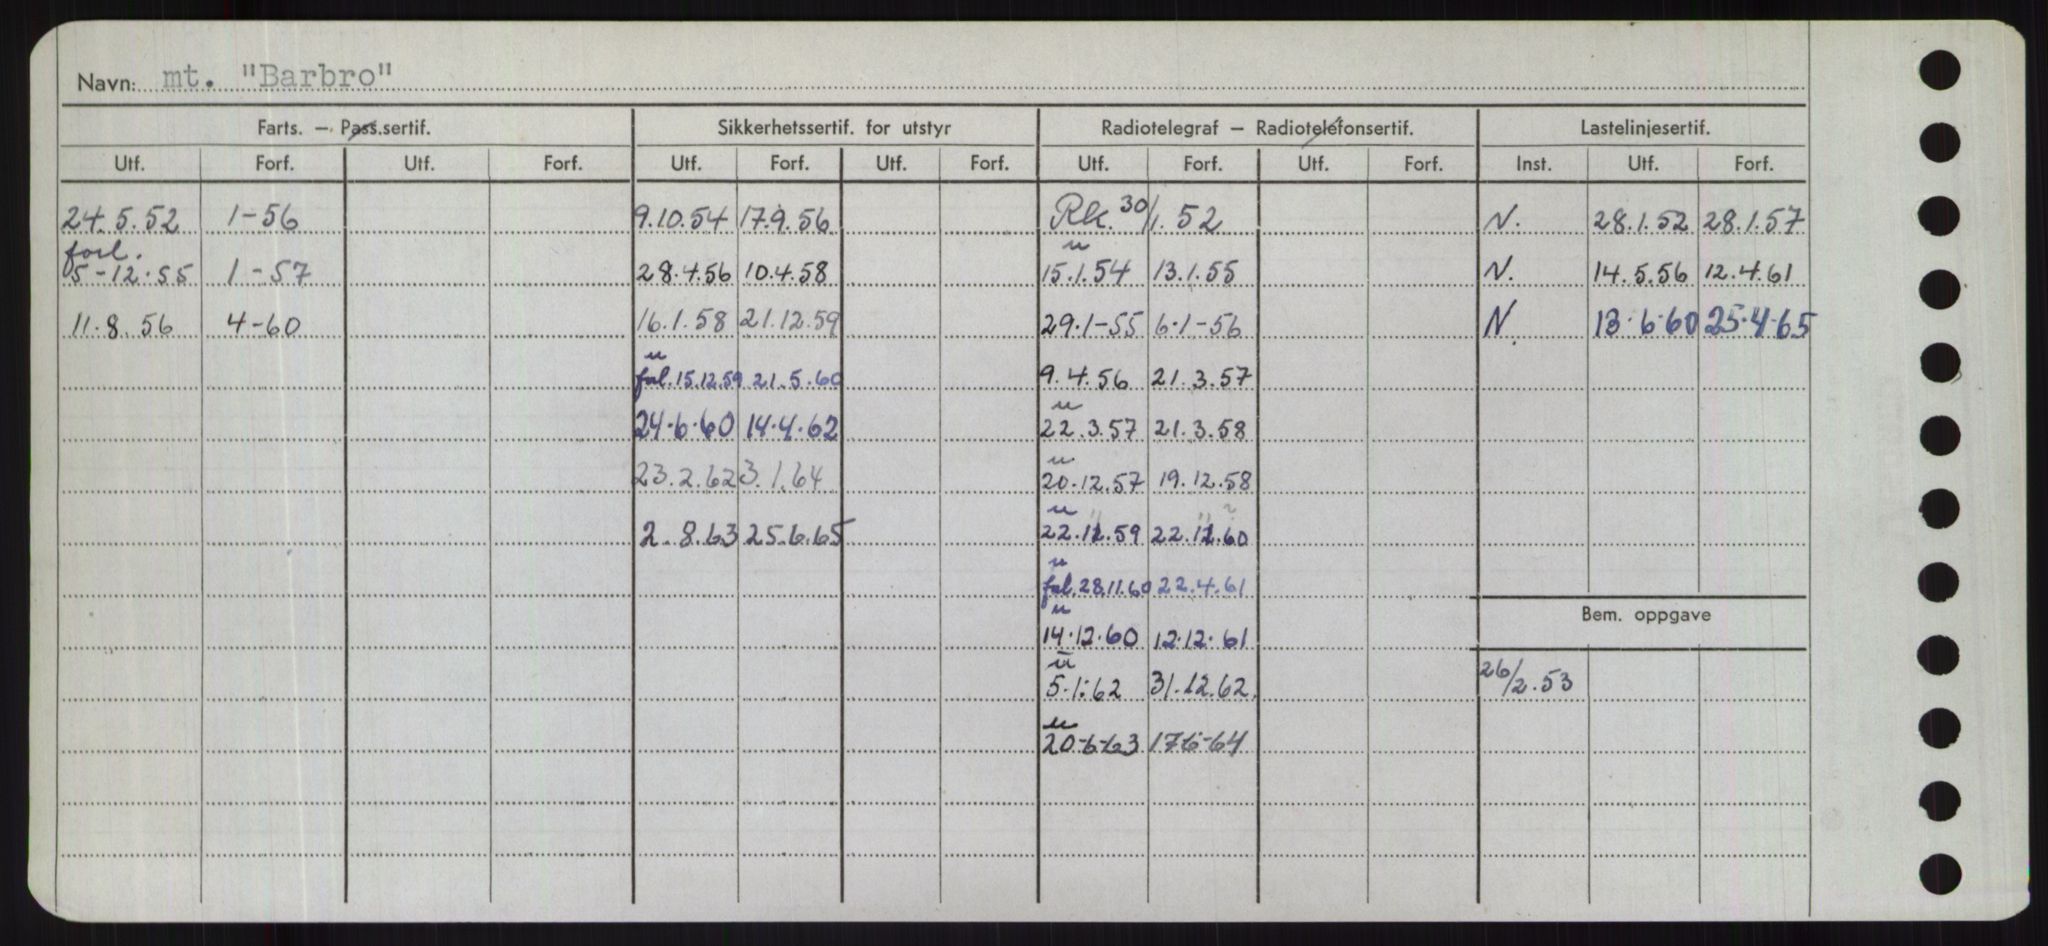 Navn: mt. "Barbro"
Farts. – Pass.sertif. Sikkerhetssertif. for utstyr Radiotelegraf – Radiotelefonsertif. Lastelinjesertif.
Utf. Forf. Utf. Forf. Utf. Forf. Utf. Forf. Utf. Forf. Utf. Forf. Inst. Utf. Forf.
24.5.52 1-56 9.10.54 17.9.56 Rk. 30/1.52 N. 28.1.52 28.1.57
forl. u
5-12-55 1-57 28.4.56 10.4.58 15.1.54 13.1.55 N. 14.5.56 12.4.61
11.8.56 4-60 16.1.58 21.12.59 29.1-55 6.1-56 N 13.6.60 25.4.65
u
fal. 15.12.59 21.5.60 9.4.56 21.3.57
u
24.6.60 14.4.62 22.3.57 21.3.58
u
23.2.62 3.1.64 20.12.57 19.12.58
u
2.8.63 25.6.65 22.12.59 22.12.60
u
fal. 28.11.60 22.4.61
u Bem. oppgave
14.12.60 12.12.61
u
5.1.62 31.12.62. 26/2.53
u
20-6-63 17-6-64